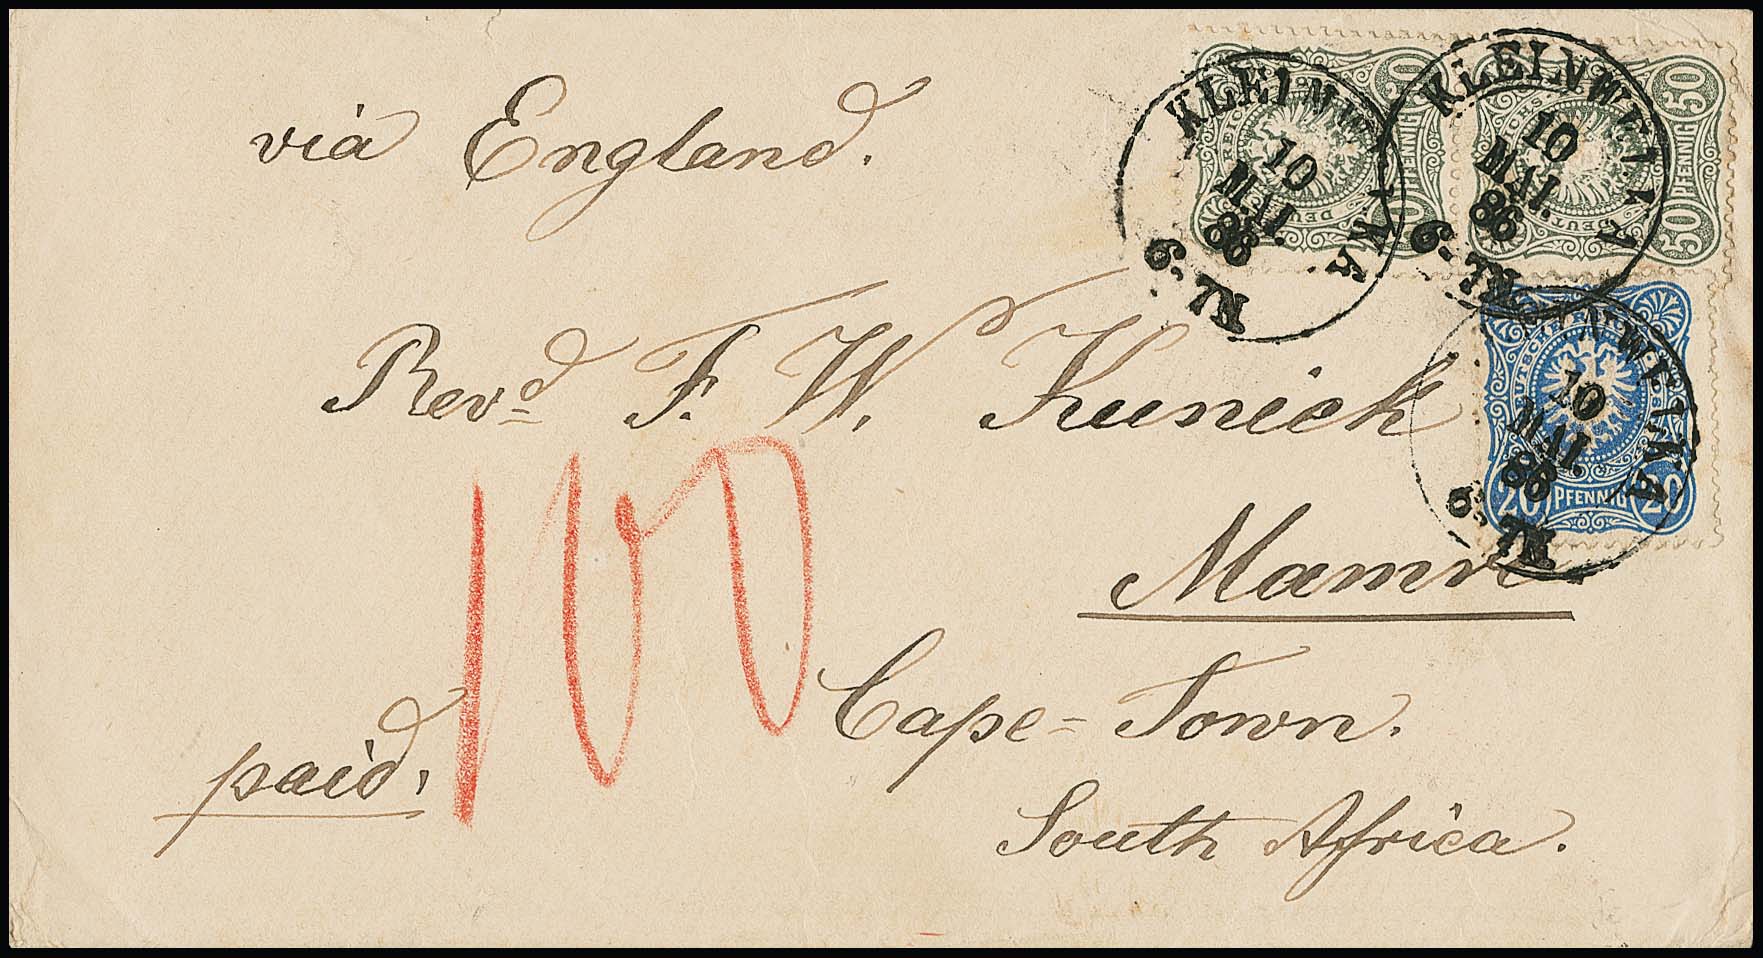 via England.
Revd F. W. Kunick
Mamre
Cape-Town.
South Africa.
paid.
100
KLEINWELKA
10
MAI.
86
6-7N.
KLEINWELKA
10
MAI.
86
6-7N.
KLEINWELKA
10
MAI.
86
6-7N.
50 PFENNIG 50
50 PFENNIG 50
20 PFENNIG 20